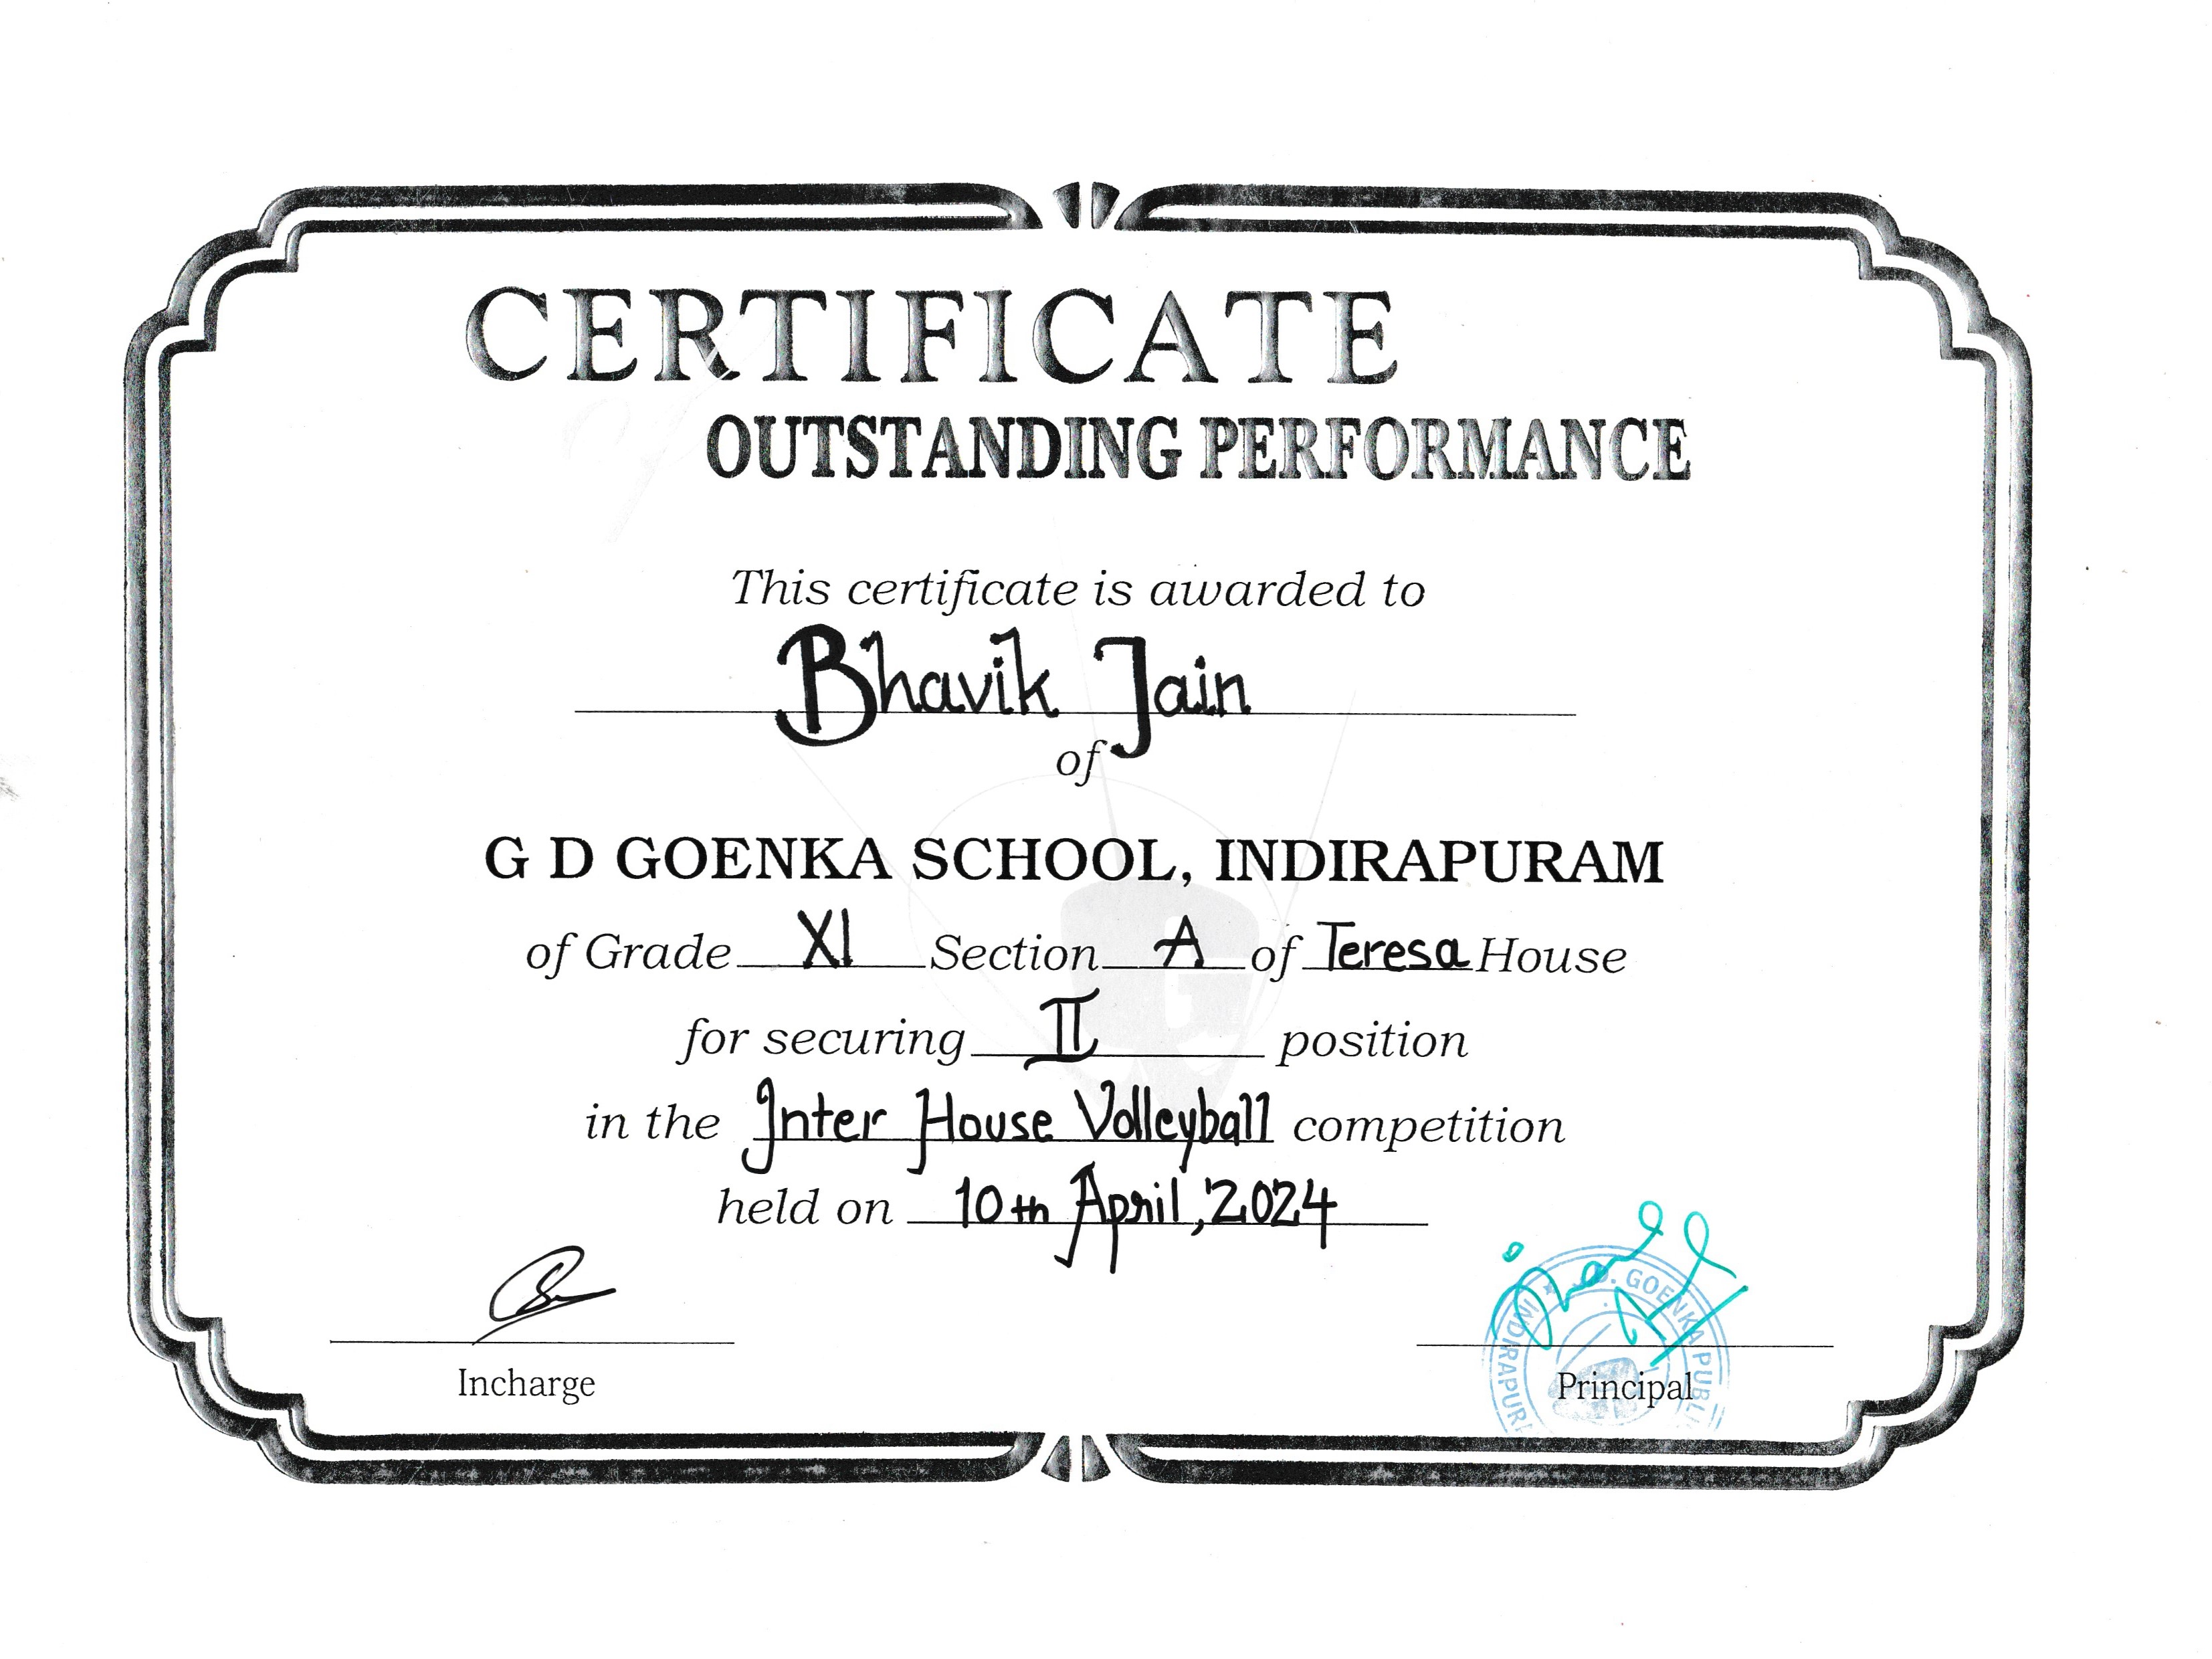 CERTIFICATE
OUTSTANDING PERFORMANCE
This certificate is awarded to
Bhavik Jain
of
G D GOENKA SCHOOL, INDIRAPURAM
of Grade XI Section A of Teresa House
for securing II position
in the Inter House Volleyball competition
held on 10th April, 2024
Incharge
Principal
GOENKA